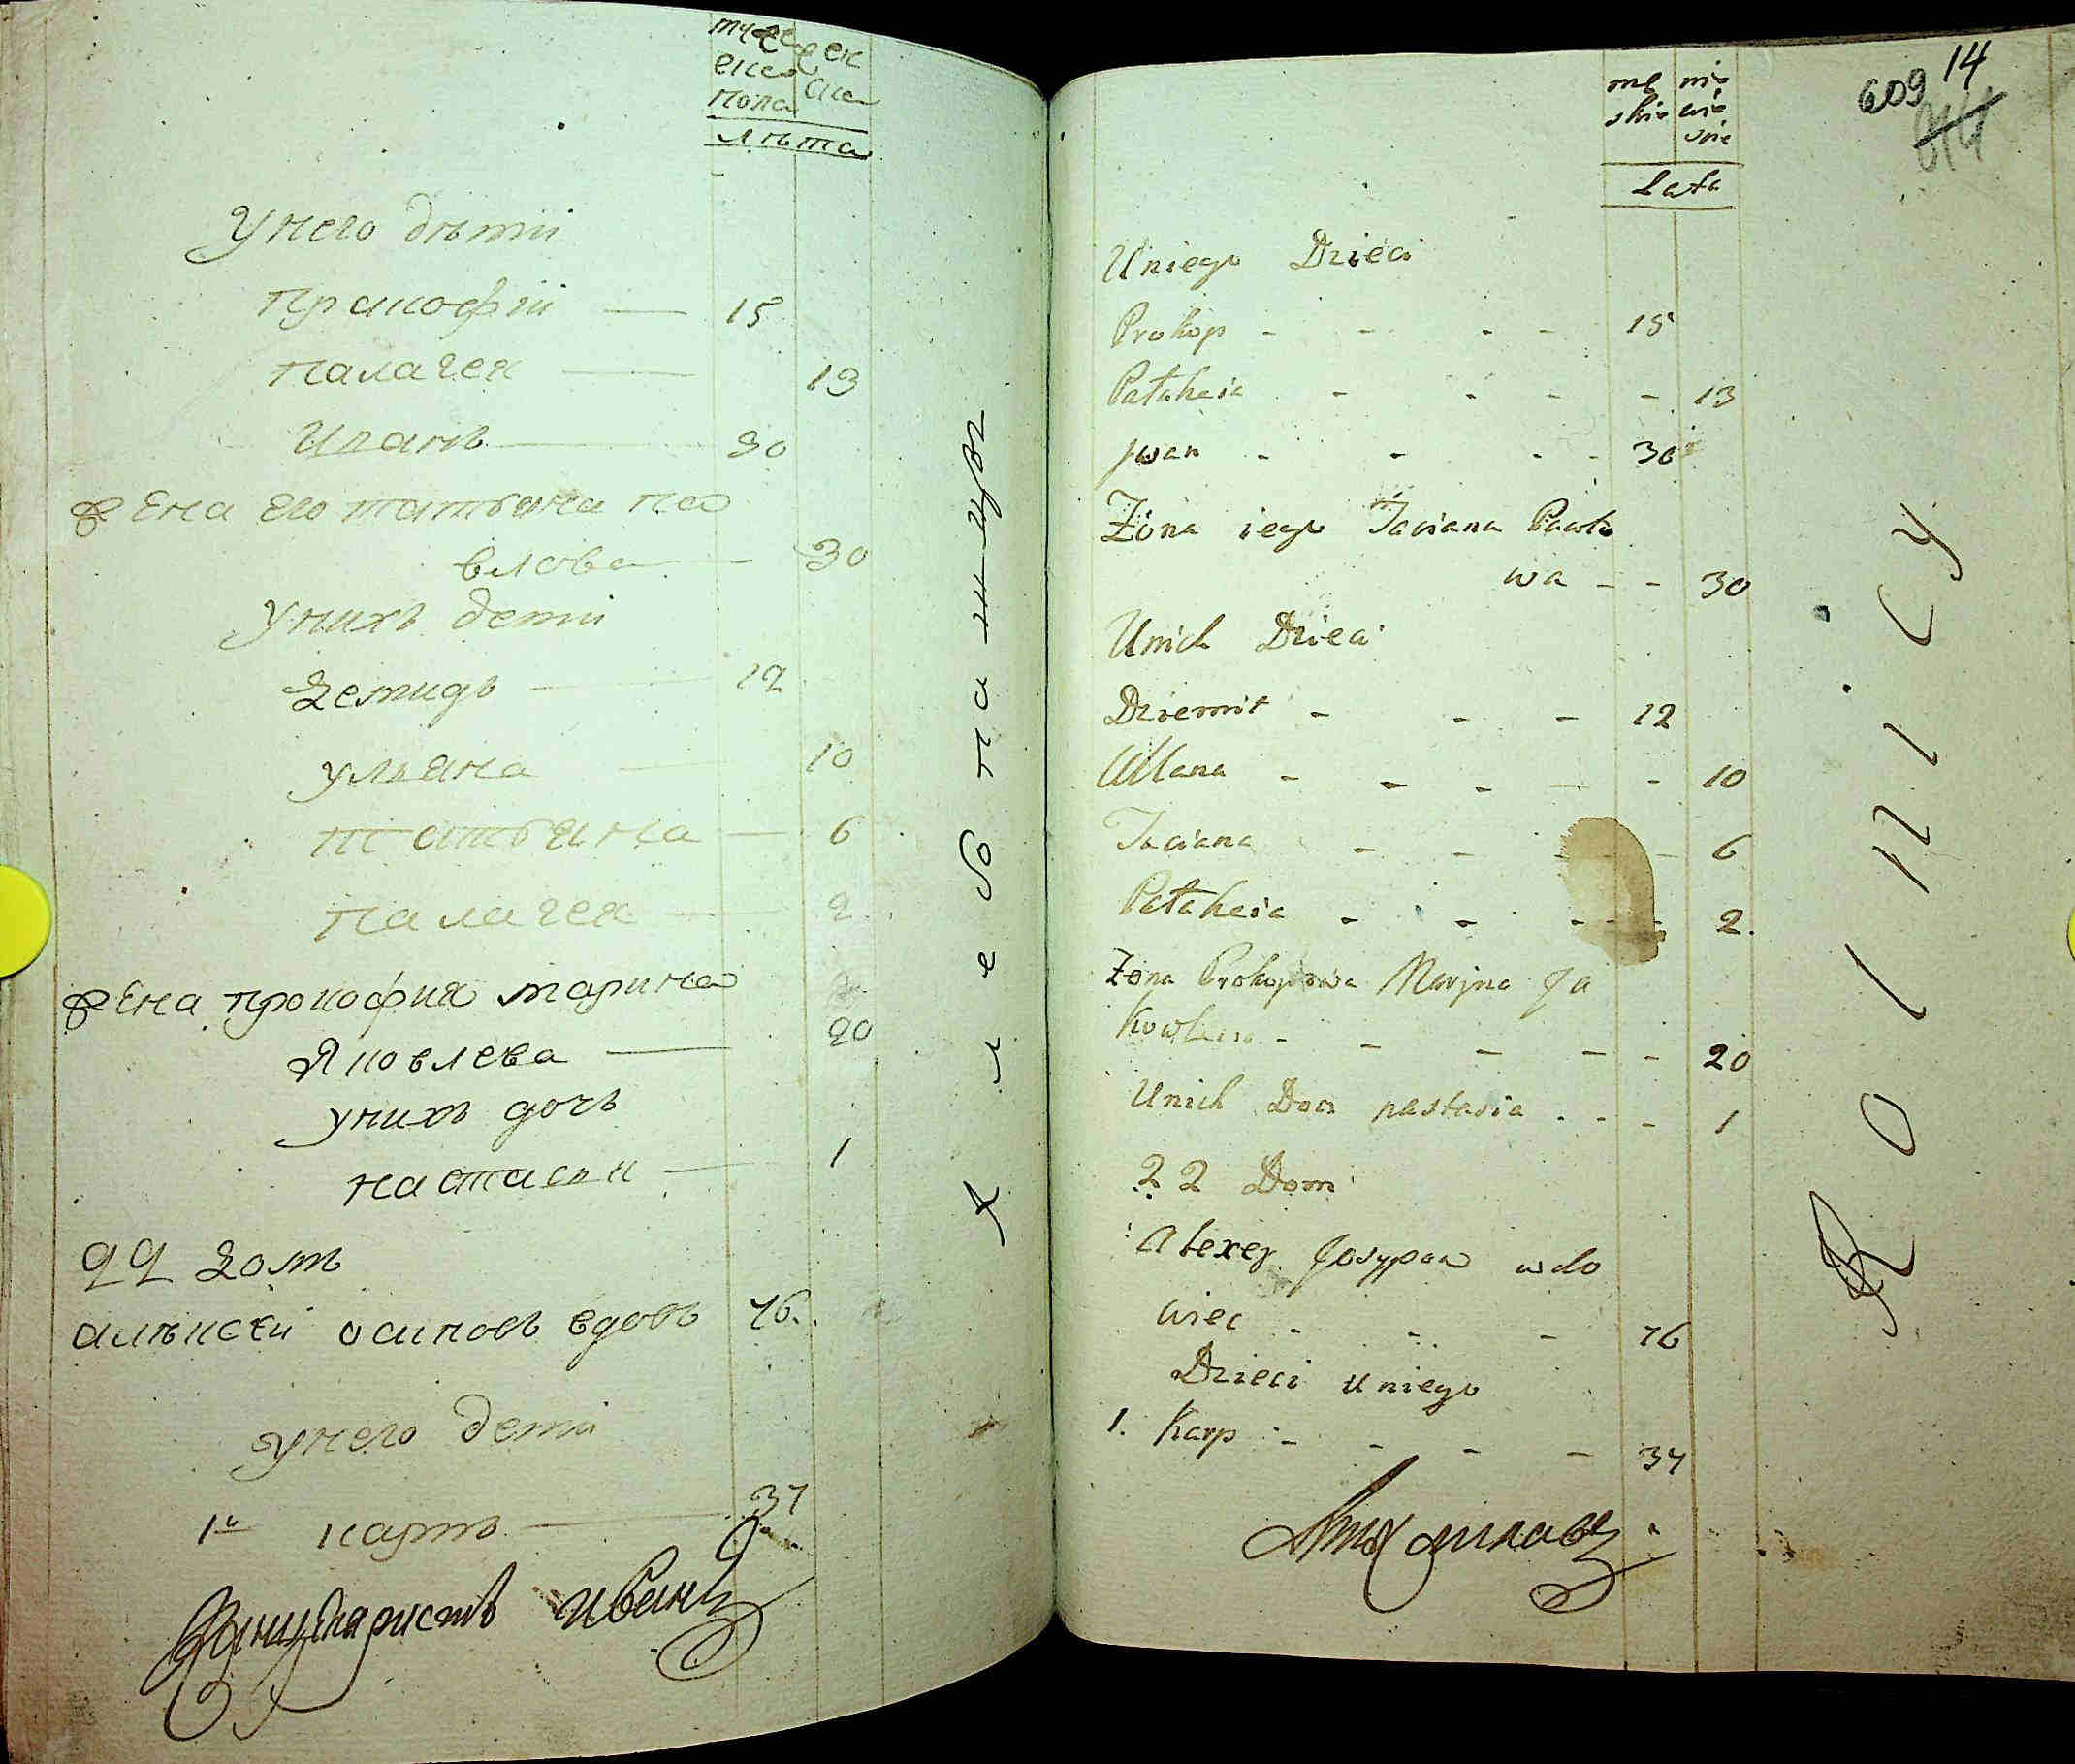 муже
ска
пола
жен
ска
лѣта
У него дѣти
Пракофій — 15
Палагея — 13
Иванъ — 30
жена его татьяна па
влова — 30
У нихъ дети
Демидъ — 12
ульяна — 10
татьяна — 6
Палагея — 2
жена прокофия марина
Яковлева — 20
у нихъ дочь
настася — 1
22 домъ
алѣксеи осиповъ вдовъ 76.
у него дети
1й карпъ — 37
Канцеляристъ Иванъ
хлебпашцы
14
609
mę
skie
nie
wie
snie
Lata
U niego Dzieci
Prokop - - - - 15
Pałaheia - - - - 13
Jwan - - - - 30
Żona iego Taciana Pawło
wa - - 30
U nich Dzieci
Dziemit - - - 12
Ullana - - - - - 10
Taciana - - - - - 6
Pałaheia - - - - - 2.
Żona Prokopowa Maryna Ja
kowlewa - - - - - 20
U nich Doci nastasia - - - 1
22 Dom
Alexey Josypow wdo
wiec - - - 76
Dzieci u niego
1. Karp - - - - 37
Rolnicy